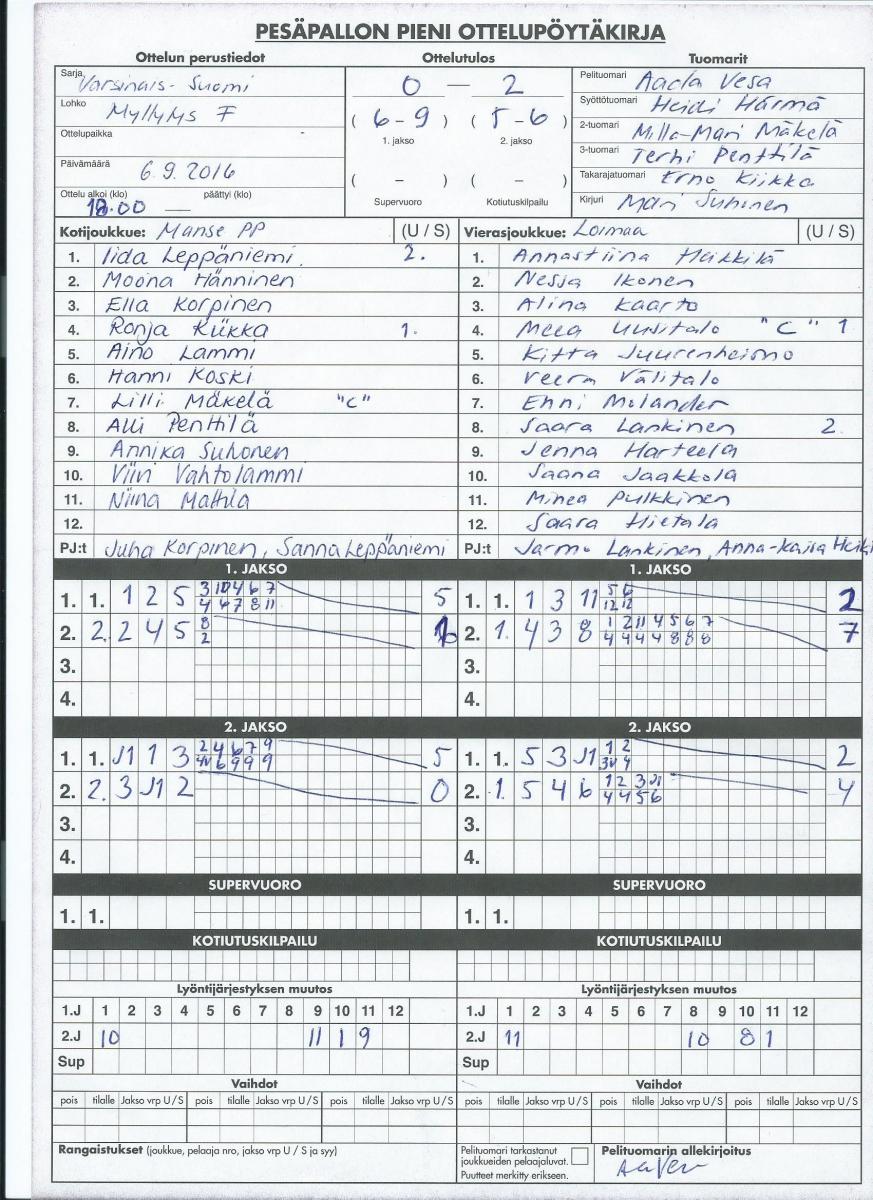 PESÄPALLON PIENI OTTELUPÖYTÄKIRJA
Ottelun perustiedot Ottelutulos Tuomarit
Sarja Varsinais-Suomi
Lohko Myllyks F
Ottelupaikka
Päivämäärä 6.9.2016
Ottelu alkoi (klo) päättyi (klo)
18.00 —
0 — 2
( 6 - 9 ) ( 5 - 6 )
1. jakso 2. jakso
( – ) ( – )
Supervuoro Kotiutuskilpailu
Pelituomari Aada Vesa
Syöttötuomari Heidi Härmä
2-tuomari Milla-Mari Mäkelä
3-tuomari Terhi Penttilä
Takarajatuomari Erno Kiikka
Kirjuri Mari Suhonen
Kotijoukkue: Manse PP (U / S) Vierasjoukkue: Loimaa (U / S)
1. Iida Leppäniemi 2. 1. Annastiina Heikkilä
2. Moona Hänninen 2. Nessa Ikonen
3. Ella Korpinen 3. Alina Kaarto
4. Ronja Kiikka 1. 4. Meea Uusitalo "C" 1
5. Aino Lammi 5. Kitta Juurenheimo
6. Hanni Koski 6. Veera Välitalo
7. Lilli Mäkelä "C" 7. Enni Molander
8. Alli Penttilä 8. Saara Lankinen 2
9. Annika Suhonen 9. Jenna Harteela
10. Viivi Vahtolammi 10. Saana Jaakkola
11. Niina Mattila 11. Minea Pulkkinen
12. 12. Saara Hietala
PJ:t Juha Korpinen, Sanna Leppäniemi PJ:t Jarmo Lankinen, Anna-Kaisa
1. JAKSO 1. JAKSO
1. 1. 1 2 5 3 10 4 6 7 5 1. 1. 1 3 11 5 6 2
4 6 7 8 11 12 12
2. 2. 2 4 5 8 1 2. 1. 4 3 8 1 2 11 4 5 6 7 7
2 4 4 4 4 8 8 8
3. 3.
4. 4.
2. JAKSO 2. JAKSO
1. 1. J1 1 3 2 4 6 7 9 5 1. 1. 5 3 J1 1 2 2
6 9 9 9 4
2. 2. 3 J1 2 0 2. 1. 5 4 6 1 2 3 J1 4
4 4 5 6
3. 3.
4. 4.
SUPERVUORO SUPERVUORO
1. 1. 1. 1.
KOTIUTUSKILPAILU KOTIUTUSKILPAILU
Lyöntijärjestyksen muutos Lyöntijärjestyksen muutos
1.J 1 2 3 4 5 6 7 8 9 10 11 12 1.J 1 2 3 4 5 6 7 8 9 10 11 12
2.J 10 11 1 9 2.J 11 10 8 1
Sup Sup
Vaihdot Vaihdot
pois tilalle Jakso vrp U / S pois tilalle Jakso vrp U / S pois tilalle Jakso vrp U / S pois tilalle Jakso vrp U / S pois tilalle Jakso vrp U / S pois tilalle Jakso vrp U / S
Rangaistukset (joukkue, pelaaja nro, jakso vrp U / S ja syy)
Pelituomari tarkastanut
joukkueiden pelaajaluvat.
Puutteet merkitty erikseen.
Pelituomarin allekirjoitus